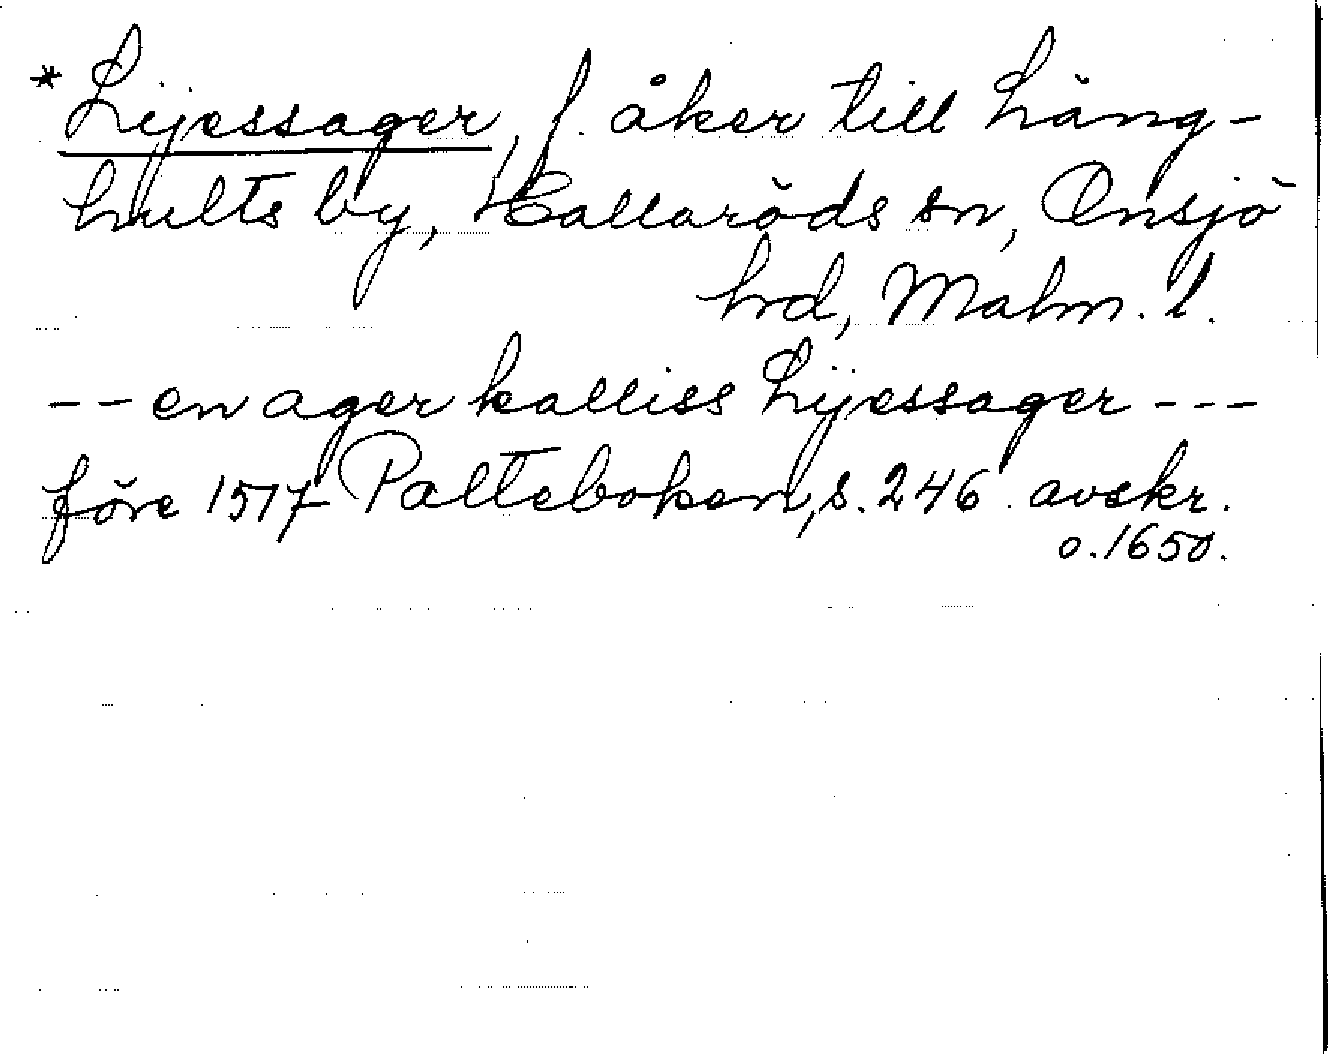 * Lijessager, f. åker till Lång-
hults by, Hallaröds sn, Onsjö
hrd, Malm. l.
-- en ager kalliss Lijessager ---
före 1517 Palteboken, s. 246 avskr.
o. 1650.